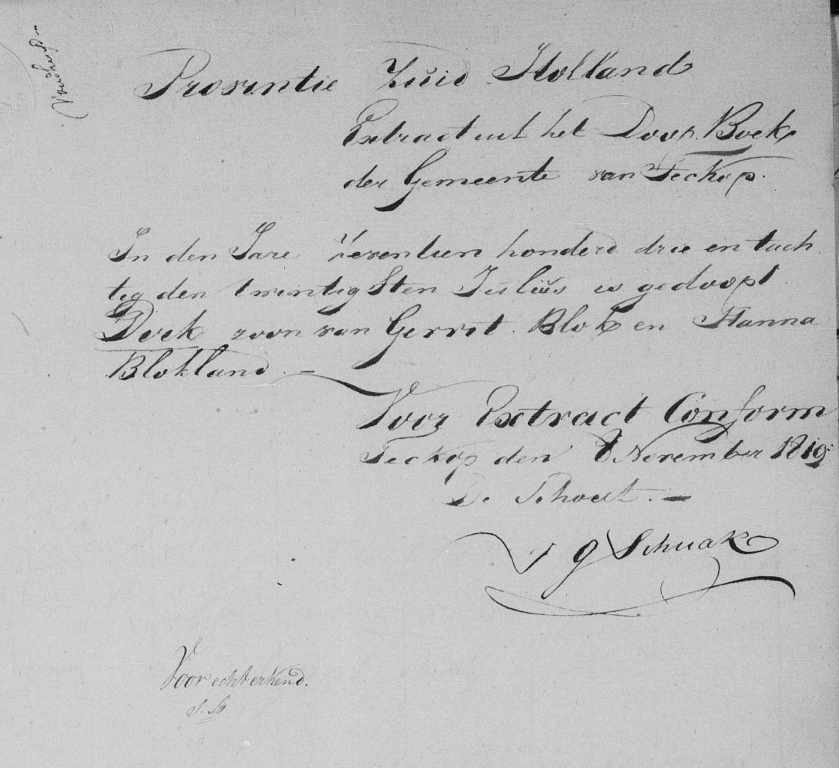 Provintie Zuid Holland
Extract uit het Doop Boek
der Gemeente van Teckop.
In den Jare Zeventien honderd drie en tach
tig den twintigsten Julius is gedoopt
Doek zoon van Gerrit Blok en Hanna
Blokland.
Voor Extract Conform
Teckop den 8 November 1810
De Schout.
J G Schuak
Voor echt erkend.